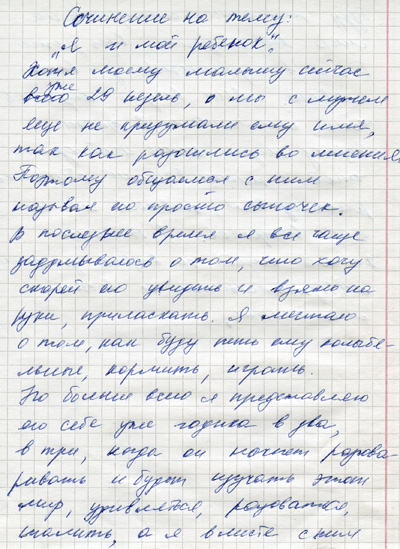 Сочинение на тему:
„Я и мой ребенок".
Хотя моему малышу сейчас
уже
всего 29 недель, а мы с мужем
еще не придумали ему имя,
так как разошлись во мнениях,
Поэтому общаемся с ним
называя его просто сыночек.
В последнее время я все чаще
задумываюсь о том, что хочу
скорей его увидеть и взять на
руки, приласкать. Я мечтаю
о том, как буду петь ему колыбе-
льные, кормить, играть.
Но больше всего я представляю
его себе уже годика в два,
в три, когда он начнет разгова-
ривать и будет изучать этот
мир, удивляться, радоваться,
шалить, а я вместе с ним